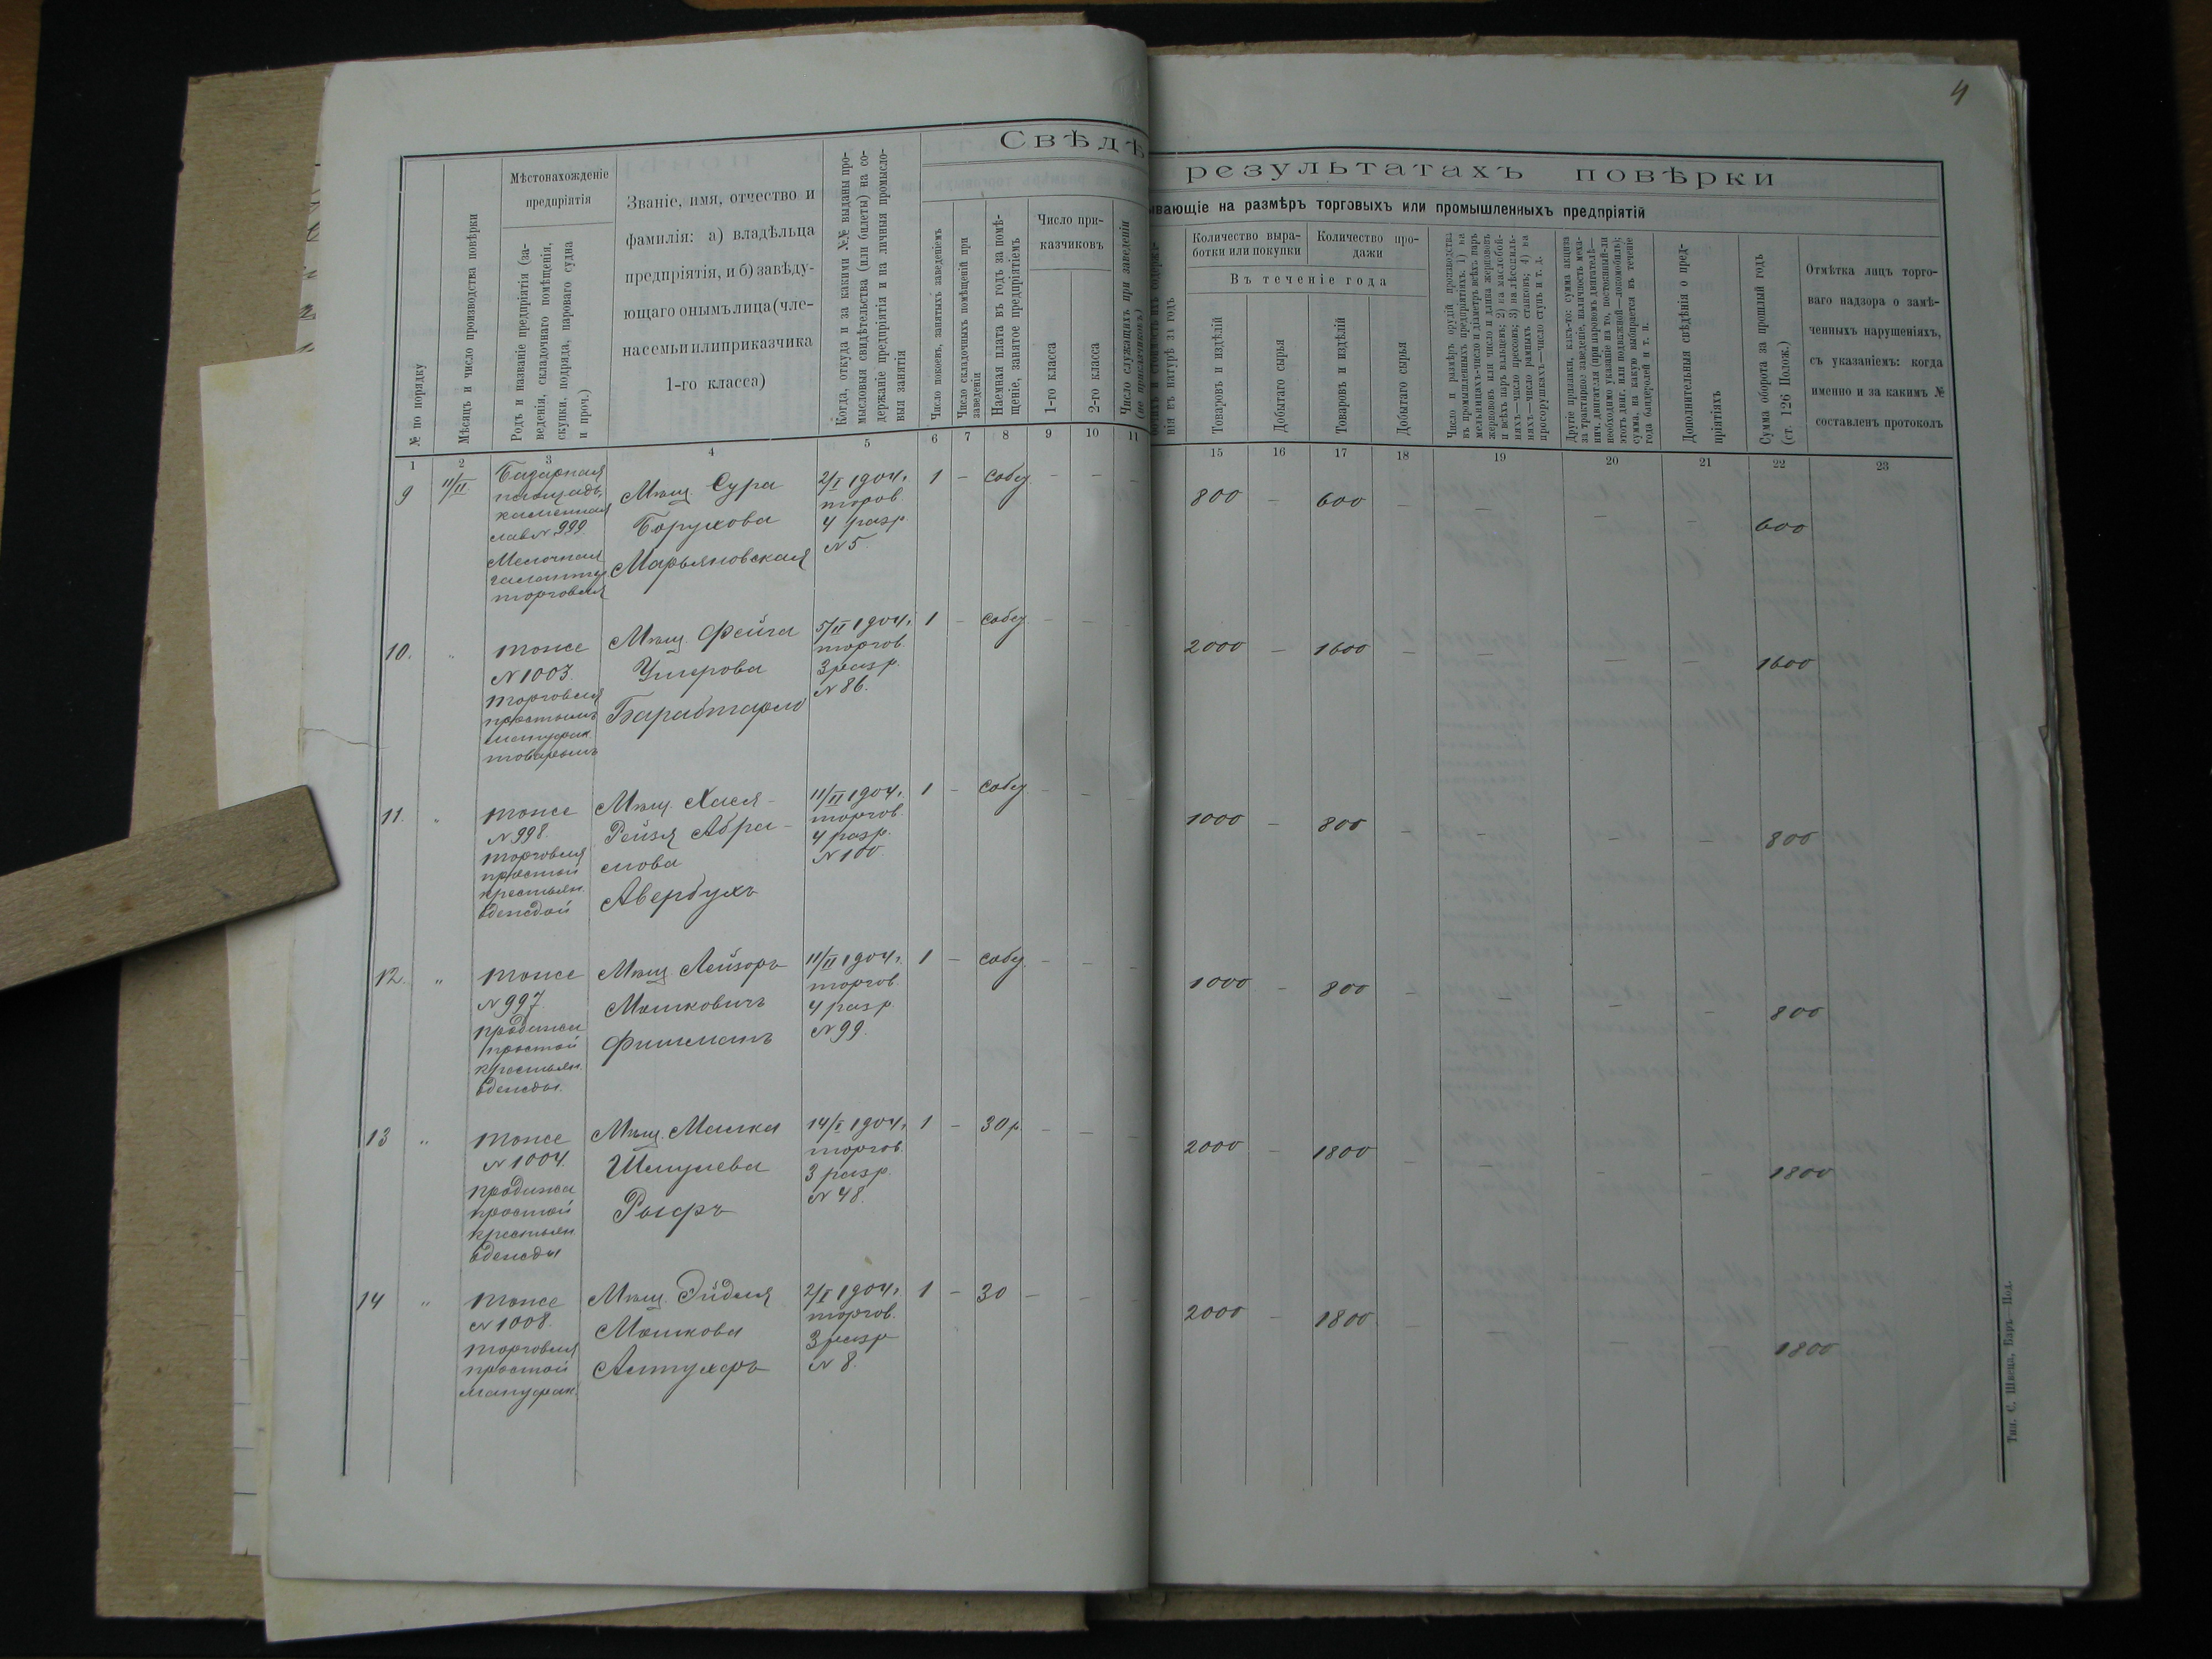 4
Свѣдѣ
результатахъ повѣрки
ывающіе на размѣръ торговыхъ или промышленныхъ предпріятій
№ по порядку
Мѣсяцъ и число производства повѣрки
Мѣстонахожденіе
предпріятія
Родъ и названіе предпріятія (за-
веденія, складочнаго помѣщенія,
скупки, подряда, пароваго судна
и проч.)
Званіе, имя, отчество и
фамилія: а) владѣльца
предпріятія, и б) завѣду-
ющаго онымъ лица (чле-
на семьи или приказчика
1-го класса)
Когда, откуда и за какими №№ выданы про-
мысловыя свидѣтельства (или билеты) на со-
держаніе предпріятія и на личныя промысло-
выя занятія
Число покоевъ, занятыхъ заведеніемъ
Число складочныхъ помѣщеній при
заведеніи
Наемная плата въ годъ за помѣ-
щеніе, занятое предпріятіемъ
Число при-
казчиковъ
1-го класса
2-го класса
Число служащихъ при заведеніи
(не приказчиковъ)
нія въ натурѣ за годъ
Количество выра-
ботки или покупки
Количество про-
дажи
Въ теченіе года
Товаровъ и издѣлій
Добытаго сырья
Товаровъ и издѣлій
Добытаго сырья
Число и размѣръ орудій производства
въ промышленныхъ предпріятіяхъ. 1) на
мельницахъ—число и діаметръ всѣхъ паръ
жернововъ или число и длина жернововъ
и всѣхъ паръ вальцевъ; 2) на маслобой-
няхъ—число прессовъ; 3) на лѣсопиль-
няхъ—число рамныхъ станковъ; 4) на
просорушкахъ—число ступъ и т. д.
Другіе признаки, какъ-то: сумма акциза
за трактирное заведеніе, наличность меха-
нич. двигателя (при паровомъ двигателѣ—
необходимо указаніе на то, постоянный-ли
этотъ двиг. или подвижной—локомобиль);
сумма, на какую выбирается въ теченіе
года бандеролей и т. п.
Дополнительныя свѣдѣнія о пред-
пріятіяхъ
Сумма оборота за прошлый годъ
(ст. 126 Полож.)
Отмѣтка лицъ торго-
ваго надзора о замѣ-
ченныхъ нарушеніяхъ,
съ указаніемъ: когда
именно и за какимъ №
составленъ протоколъ
1 2 3 4 5 6 7 8 9 10 11 15 16 17 18 19 20 21 22 23
9 11/II Базарная
площадь,
каменная
лав. № 999
Мелочная
галантер.
торговля
Мѣщ. Сура
Борухова
Марьяновская
2/I 1904 г.
торгов.
4 разр.
№ 5.
1 – собст. – – – 800 – 600 – – – – 600
10. " тоже
№ 1003.
торговля
простымъ
мануфак.
товаромъ
Мѣщ. Фейга
Умерова
5/II 1904 г.
торгов.
3 разр.
№ 86.
1 – собст. – – – 2000 – 1600 – – – – 1600
11. " тоже
№ 998.
торговля
простой
крестьян.
одеждой
Мѣщ. Хася-
Рейзя Абра-
мова
Авербухъ
11/II 1904 г.
торгов.
4 разр.
№ 100.
1 – собст. – – – 1000 – 800 – – – – 800
12. " тоже
№ 997.
продажа
простой
крестьян.
одежды.
Мѣщ. Лейзоръ
Мошковичъ
Фишманъ
11/II 1904 г.
торгов.
4 разр.
№ 99.
1 – собст. – – – 1000 – 800 – – – – 800
13 " тоже
№ 1004.
продажа
простой
крестьян.
одежды
Мѣщ. Малка
Шмулева
14/I 1904 г.
торгов.
3 разр.
№ 48.
1 – 30 р – – – 2000 – 1800 – – – – 1800
14 " тоже
№ 1008.
торговля
простой
мануфак.
Мѣщ. Эйдля
Мошкова
Алтухеръ
2/I 1904 г.
торгов.
3 разр
№ 8.
1 – 30 – – – 2000 – 1800 – – – – 1800
Тип. С. Швеца, Баръ—Под.